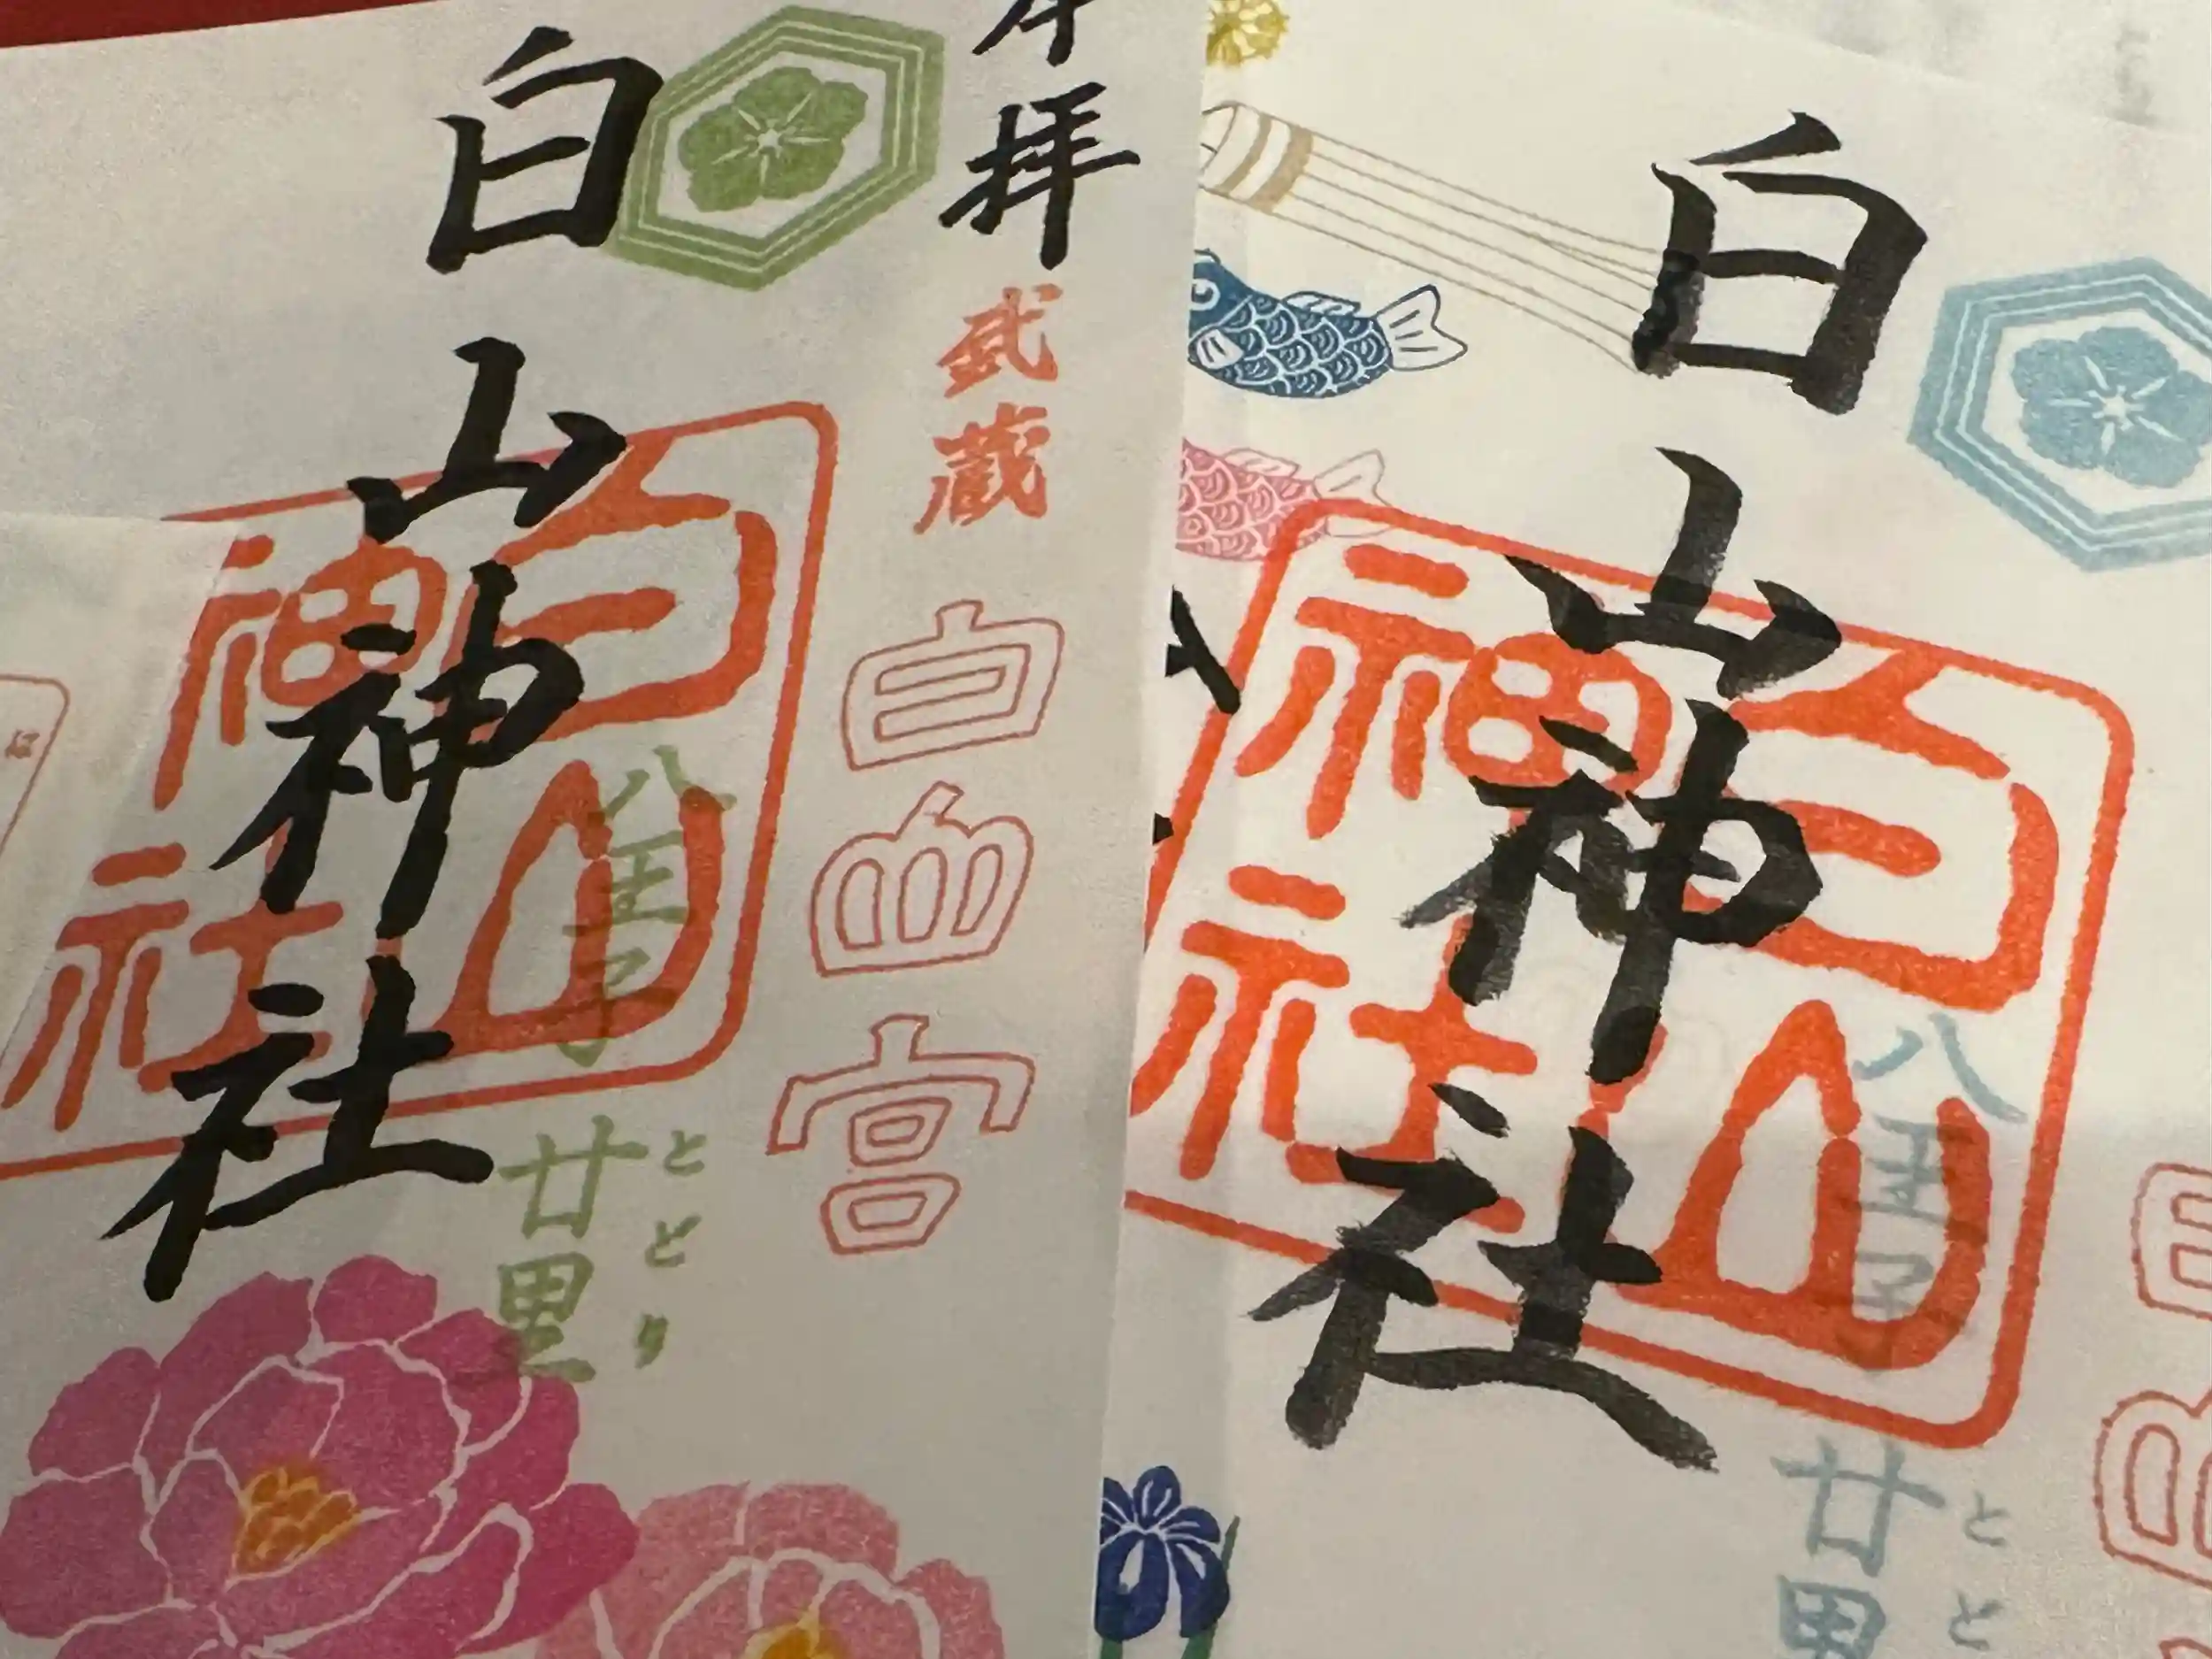 奉拝
武蔵
白山宮
白山神社
白山神社
八王子
廿里
とどり
白山神社
白山神社
八王子
廿里
とど